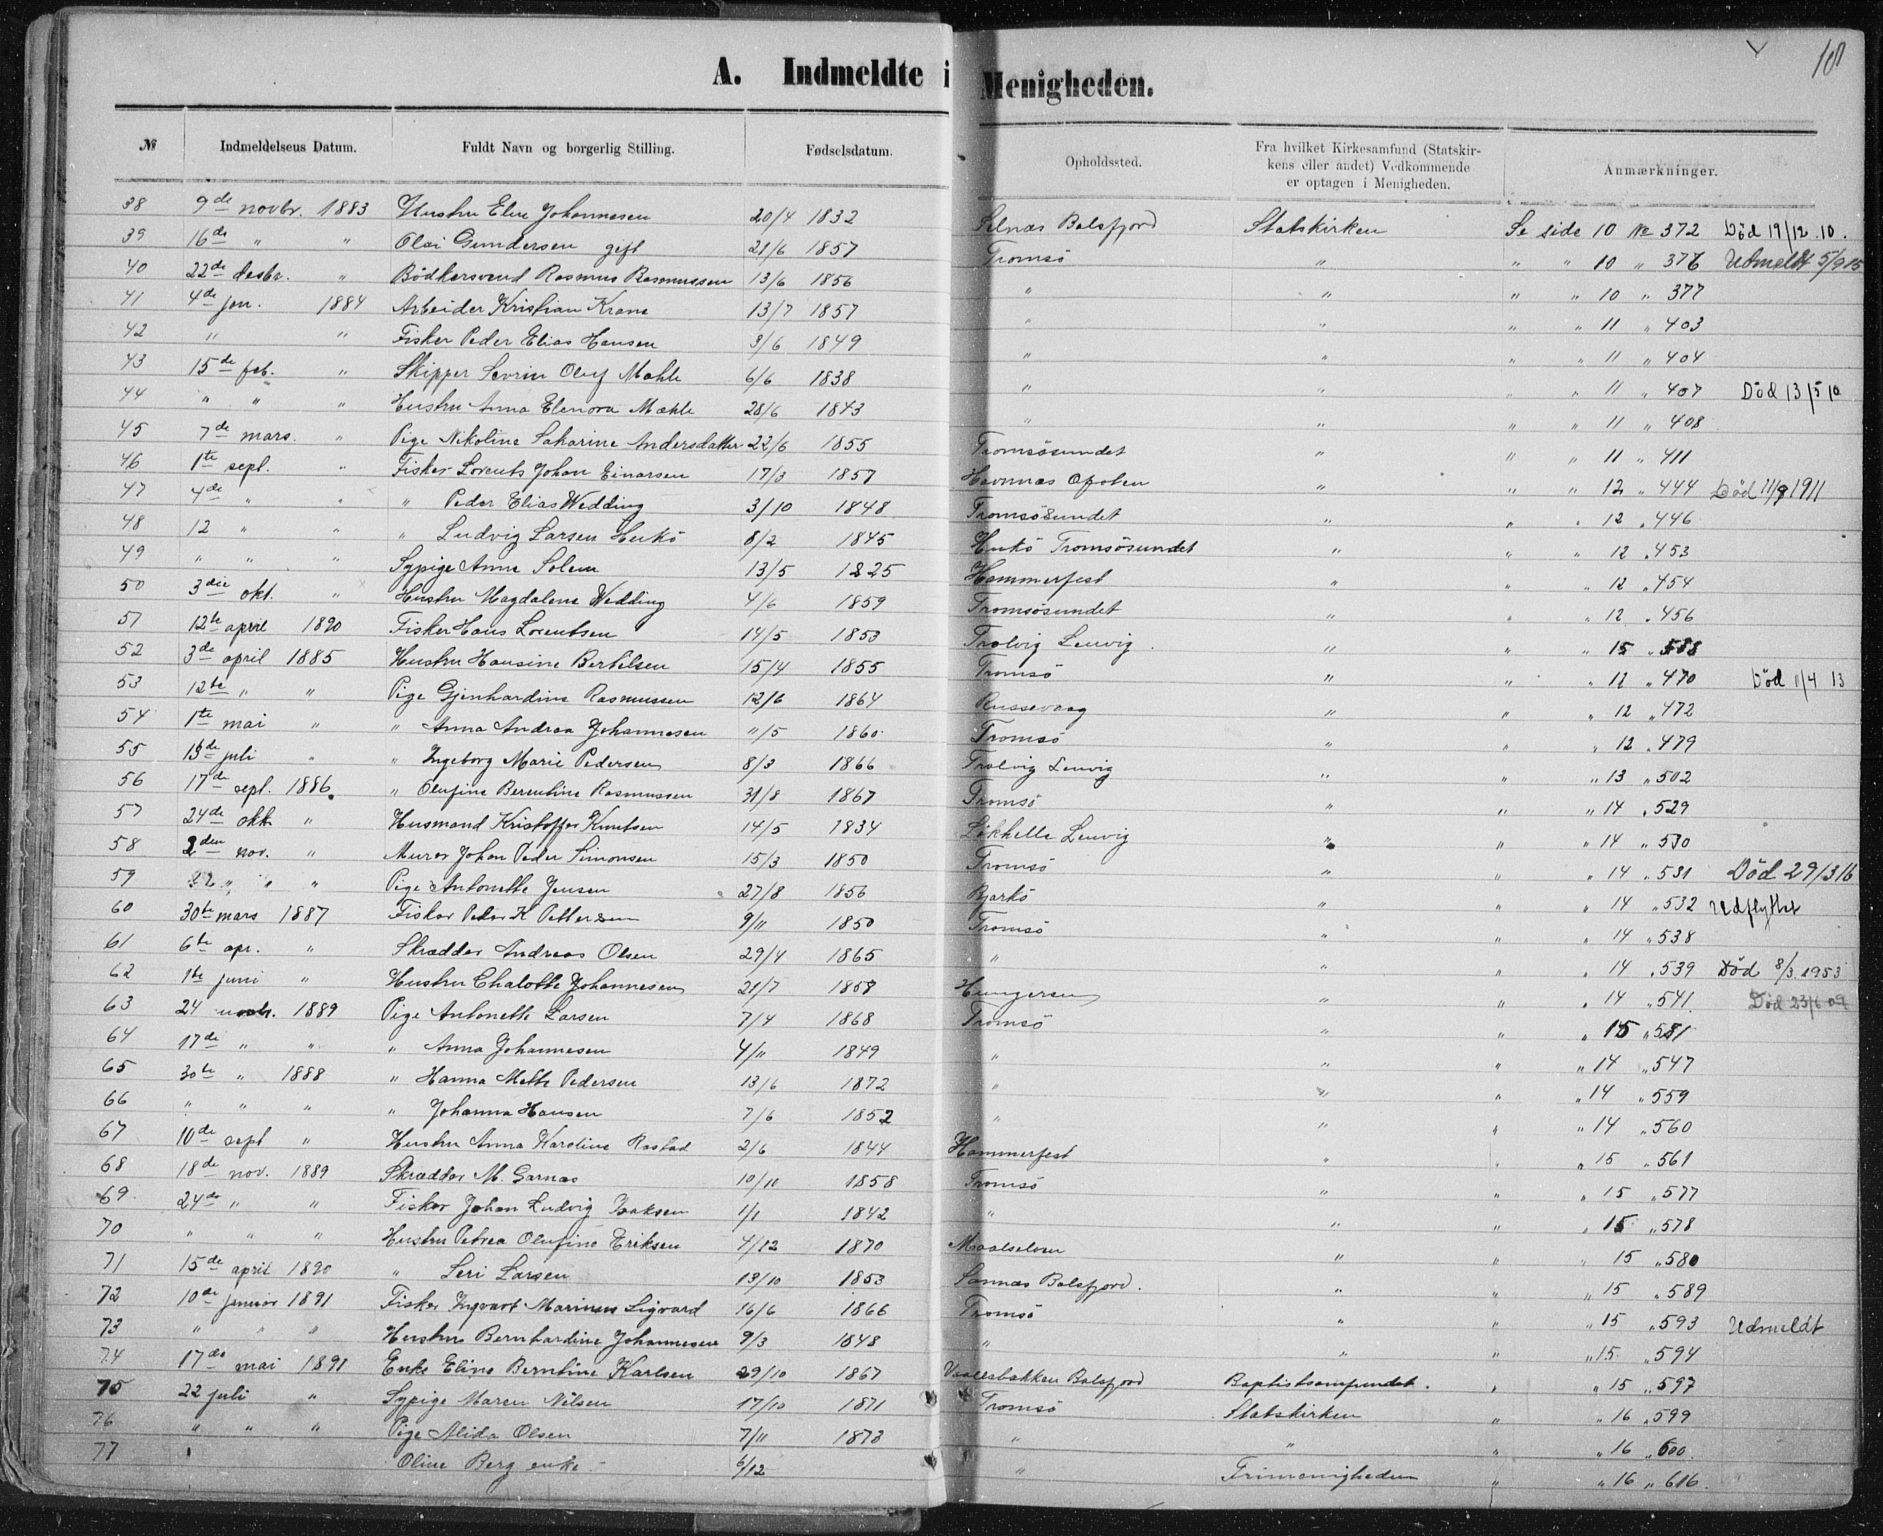 A. Indmeldte i Menigheden.
10
№ Indmeldelseus Datum. Fuldt Navn og borgerlig Stilling. Fødselsdatum. Opholdssted. Fra hvilket Kirkesamfund (Statskirkens eller andet) Vedkommende er optagen i Menigheden. Anmærkninger.
38 9de novbr. 1883 Hustru Elen Johannesen 20/4 1832 Selnæs Balsfjord Statskirken Se side 10 № 372 Död 19/12 10.
39 16de " " Olai Gundersen gift 21/6 1857 Tromsö " " " 10 " 376 Udmeldt 5/9 15
40 22de desbr. " Bödkersvend Rasmus Rasmussen 13/6 1856 " " " " 10 " 377
41 4de jan. 1884 Arbeider Kristian Krane 13/7 1857 " " " " 11 " 403
42 " " Fisker Peder Elias Hansen 3/6 1849 " " " " 11 " 404
43 15de feb. " Skipper Sevrin Oluf Mahle 6/6 1838 " " " " 11 " 407 Död 13/5 10
44 " " " Hustru Anna Elenora Mæhle 28/6 1843 " " " " 11 " 408
45 7de mars. " Pige Nikoline Saharine Andersdatter 22/6 1855 Tromsösundet " " " 11 " 411
46 1te sept. " Fisker Lorents Johan Einarsen 17/3 1857 Havnnæs " " " 12 " 444 Död 11/9 1911
47 4de " " " Peder Elias Wedding 3/10 1848 Tromsösundet " " " 12 " 446
48 12 " " " Ludvig Larsen 8/2 1845 Tromsösundet " " " 12 " 453
49 " " " Sypige Anna Solem 13/5 1825 Hammerfest " " " 12 " 454
50 3die okt. " Hustru Magdalena Wedding 4/6 1859 Tromsösundet " " " 12 " 456
51 12te april 1890 Fisker Hans Lorentsen 14/5 1853 Trolvig Lenvig. " " " 15 " 588
52 3de april 1885 Hustru Hansine Bertelsen 15/4 1855 Tromsö " " " 12 " 470 Död 11/4 13
53 12te " " Pige Gjenhardine Rasmussen 12/6 1864 Russevaag " " " 12 " 472
54 1te mai " " Anna Andrea Johannesen "/5 1860 Tromsö " " " 12 " 479
55 13de juli " " Ingeborg Marie Pedersen 8/3 1866 Trolvig Lenvig " " " 13 " 502
56 17de sept. 1886. " Olufine Berentine Rasmussen 31/8 1867 Tromsö " " " 14 " 529
57 24de okt. " Husmand Kristoffer Knutsen 14/5 1834 Lökhelle Lenvig " " " 14 " 530
58 2den nov. " Murer Johan Peder Simonsen 15/3 1850 Tromsö " " " 14 " 531 Död 29/3 16
59 22 " " " Pige Antonette Jensen 27/8 1856 Bjarkö " " " 14 " 532 Udflyttet
60 30te mars 1887 Fisker Peder K Pettersen 9/11 1850 Tromsö " " " 14 " 538
61 6te apr. " Skrædder Andreas Olsen 29/4 1865 " " " " 14 " 539 Död 8/3 1953
62 1te juni " Hustru Chalotte Johannesen 21/7 1858 " " " 14 " 541. Död 23/6 09
63 24 novbr. 1889 Pige Antonette Larsen 7/4 1868 Tromsö " " " 15 " 581
64 17de " " " Anna Johannesen 4/11 1849 " " " " 14 " 547
65 30te " 1888 " Hanna Mette Pedersen 13/6 1872 " " " " 14 " 559
66 " " " " Johanna Hansen 7/6 1852 " " " " 14 " 560
67 10de sept " Hustru Anna Karoline Rastad 2/6 1844 Hammerfest " " " 15 " 561
68 18de nov. 1889 Skrædder M. Garnæs 10/10 1858 Tromsö " " " 15 " 577
69 24de " " Fisker Johan Ludvig Isaksen 1/1 1842 " " " " 15 " 578
70 " " " Hustru Petrea Olufine Eriksen 4/12 1870 Maalselven " " 15 " 580
71 15de april 1890 " Seri Larsen 13/10 1853 Sannæs Balsfjord. " " " 15 " 589
72 10de januar 1891 Fisker Ingvart Marinius Sigvard 16/6 1866 Tromsö " " " 15 " 593 Udmeldt
73 " " " Hustru Bernhardine Johannesen 9/3 1848 " " " " 15 " 594
74 17de mai 1891 Enke Eline Berntine Karlsen 29/10 1867 Balsfjord Baptistsamfundet. " " 15 " 597
75 22 juli " Sypige Maren Nilsen 17/10 1871 Tromsö Statskirken " " 16 " 599
76 " " " Pige Alida Olsen 7/11 1873 " " " " 16 " 600
77 Oline Berg enke 6/12 " Frimenigheden " " 16 " 616